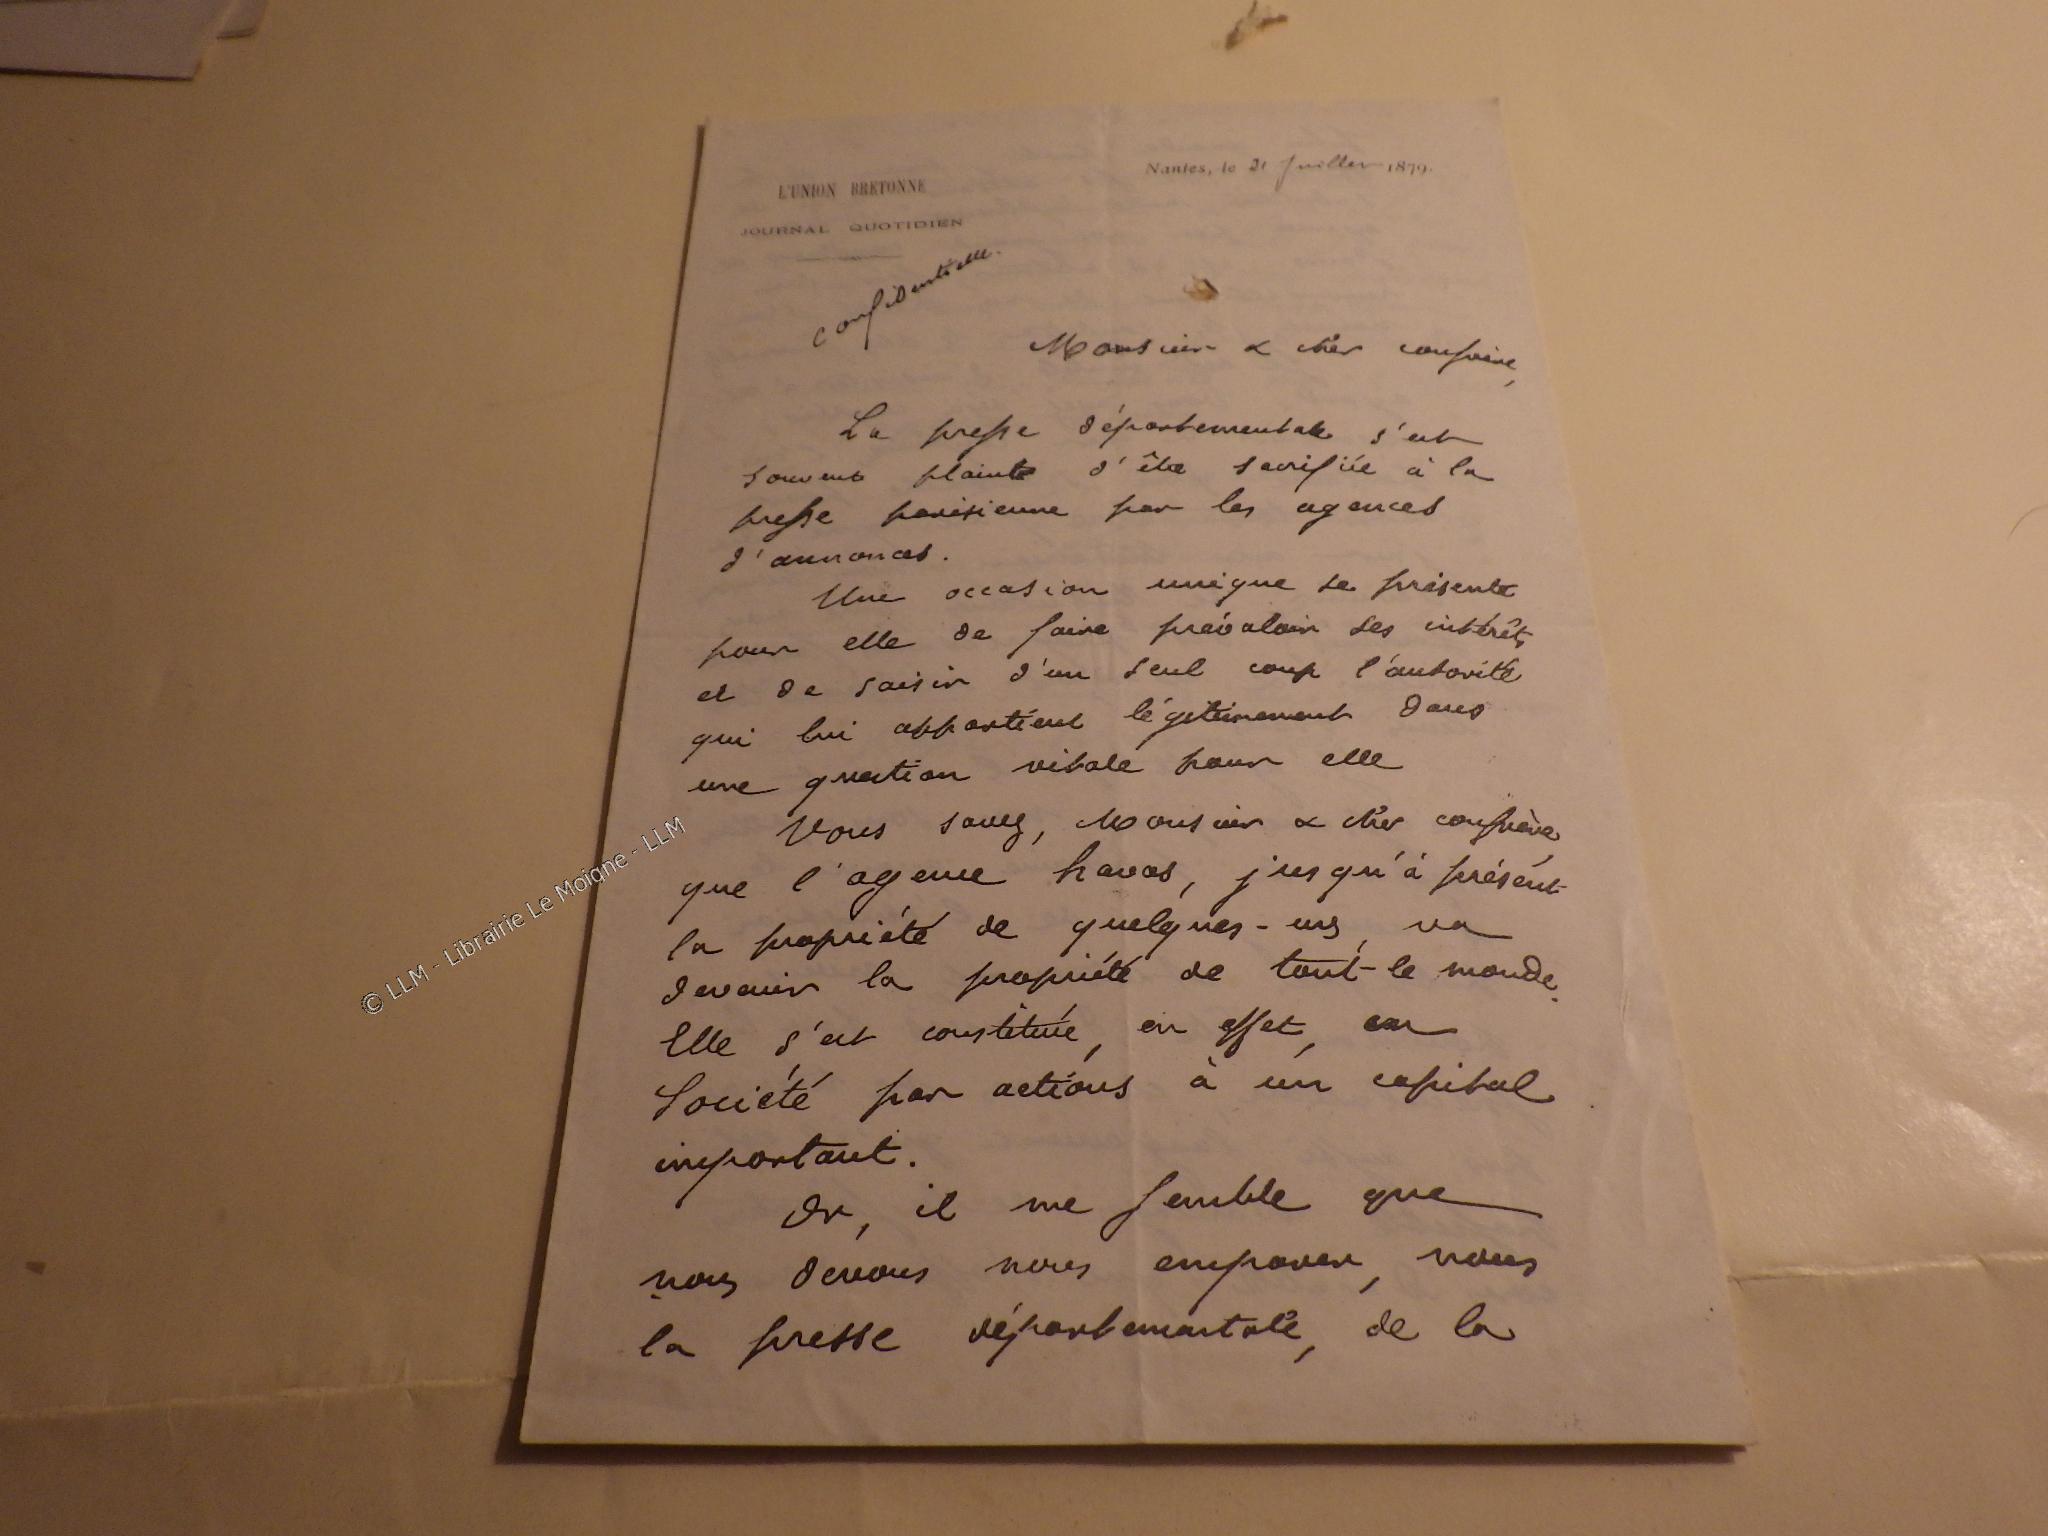 L'UNION BRETONNE
JOURNAL QUOTIDIEN
Nantes, le 21 Juillet 1879.
Confidentielle.
Monsieur & cher confrère,
La presse départementale s'est
souvent plainte d'être sacrifiée à la
presse parisienne par les agences
d'annonces.
Une occasion unique se présente
pour elle de faire prévaloir ses intérêts
et de saisir d'un seul coup l'autorité
qui lui appartient légitimement dans
une question vitale pour elle
Vous savez, Monsieur & cher confrère,
que l'agence havas, jusqu'à présent
la propriété de quelques-uns, va
devenir la propriété de tout-le monde.
Elle s'est constituée, en effet, en
Société par actions à un capital
important.
Or, il me semble que
nous devons nous emparer, nous
la presse départementale, de la
© LLM - Librairie Le Moigne - LLM